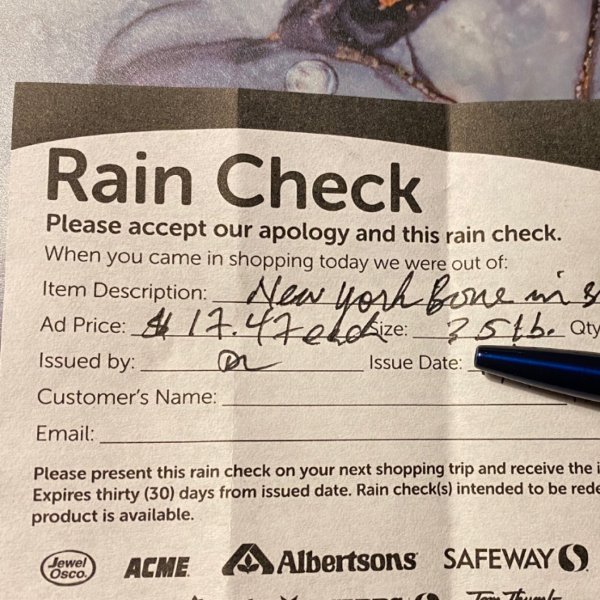 Rain Check
Please accept our apology and this rain check.
When you came in shopping today we were out of:
Item Description: New York Bone in
Ad Price: $17.47 each Size: 3.5 lb. Qty
Issued by: Issue Date:
Customer's Name:
Email:
Please present this rain check on your next shopping trip and receive the
Expires thirty (30) days from issued date. Rain check(s) intended to be
product is available.
Jewel Osco. ACME Albertsons SAFEWAY
Tom Thumb